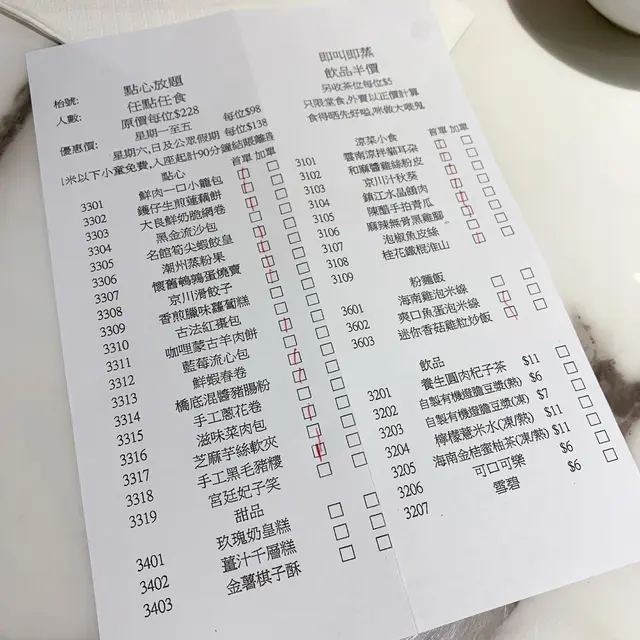 點心放題
任點任食
枱號:
原價每位$228
人數:
星期一至五 每位$98
優惠價:
星期六,日及公眾假期 每位$138
1米以下小童免費,入座起計90分鐘結賬離座
點心 首單 加單
3301 鮮肉一口小籠包
3302 鑊仔生煎蓮藕餅
3303 大良鮮奶脆網卷
3304 黑金流沙包
3305 名館筍尖蝦餃皇
3306 潮州蒸粉果
3307 懷舊鵪鶉蛋燒賣
3308 京川滑餃子
3309 香煎臘味蘿蔔糕
3310 古法紅棗包
3311 咖哩蒙古羊肉餅
3312 藍莓流心包
3313 鮮蝦春卷
3314 橋底混醬豬腸粉
3315 手工蔥花卷
3316 滋味菜肉包
3317 芝麻芋絲軟夾
3318 手工黑毛豬糭
3319 宮廷妃子笑
甜品
3401 玫瑰奶皇糕
3402 薑汁千層糕
3403 金薯棋子酥
即叫即蒸
飲品半價
另收茶位每位$5
只限堂食,外賣以正價計算
食得晒先好嗌,咪做大喂鬼
涼菜小食 首單 加單
3101 雲南涼拌貓耳朶
3102 和麻醬雞絲粉皮
3103 京川汁秋葵
3104 鎮江水晶餚肉
3105 陳醋手拍青瓜
3106 麻辣無骨黑雞腳
3107 泡椒魚皮絲
3108 桂花鐵棍淮山
3109
粉麵飯
3601 海南雞泡米線
3602 爽口魚蛋泡米線
3603 迷你香菇雞粒炒飯
飲品
3201 養生圓肉杞子茶 $11
3202 自製有機燈膽豆漿(熱) $6
3203 自製有機燈膽豆漿(凍) $7
3204 檸檬薏米水(凍/熱) $11
3205 海南金桔蜜柚茶(凍/熱) $11
3206 可口可樂 $6
3207 雪碧 $6